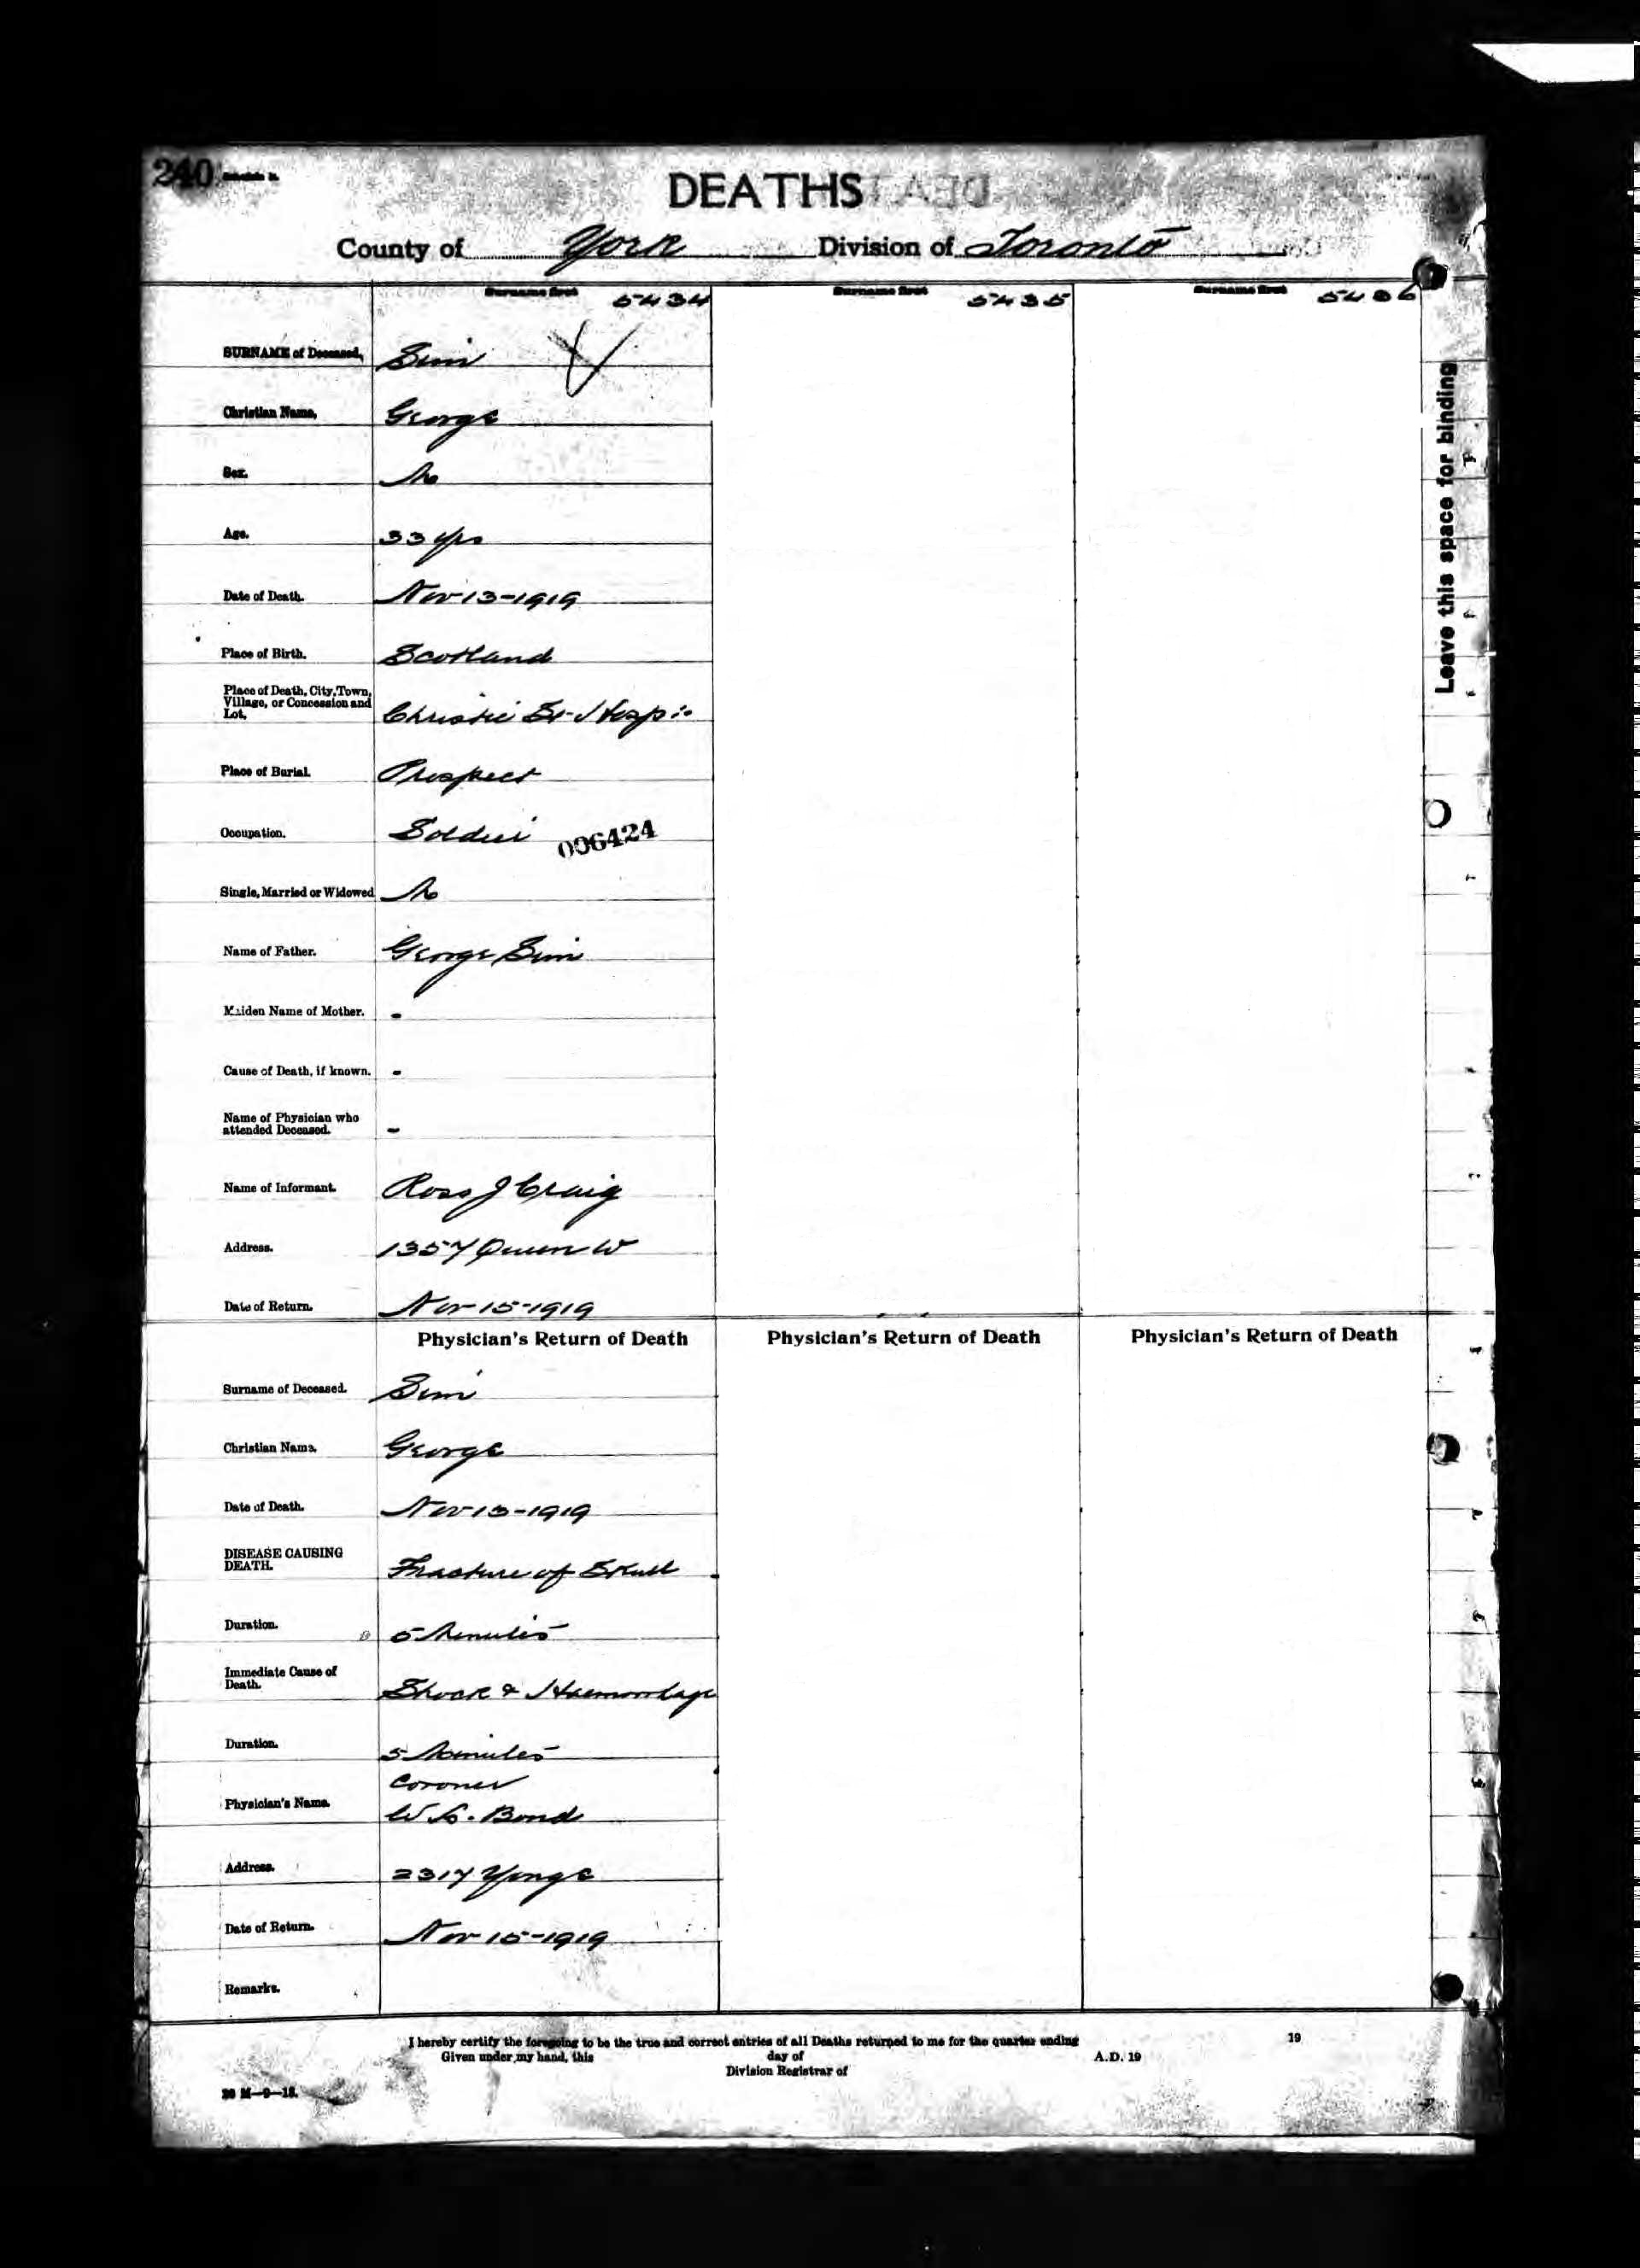 240 Schedule
DEATHS
County of York Division of Toronto
Surname first 5434 Surname first 5435 Surname first 5436
SURNAME of Deceased, Sim
Christian Name, George
Sex. M
Age. 33 yrs
Date of Death. Nov 13-1919
Place of Birth. Scotland
Place of Death, City, Town,
Village, or Concession and
Lot, Christie St. Hosp
Place of Burial. Prospect
Occupation. Soldier 006424
Single, Married or Widowed M
Name of Father. George Sim
Maiden Name of Mother. -
Cause of Death, if known. -
Name of Physician who
attended Deceased. -
Name of Informant. Ross J Craig
Address. 1357 Queen W
Date of Return. Nov 15-1919
Leave this space for binding
Physician's Return of Death Physician's Return of Death Physician's Return of Death
Surname of Deceased. Sim
Christian Name. George
Date of Death. Nov 13-1919
DISEASE CAUSING
DEATH. Fracture of Skull
Duration. 5 Minutes
Immediate Cause of
Death. Shock & Haemorrhage
Duration. 5 Minutes
Coroner
Physician's Name. W. Bond
Address. 2317 Yonge
Date of Return. Nov 15-1919
Remarks.
I hereby certify the foregoing to be the true and correct entries of all Deaths returned to me for the quarter ending 19
Given under my hand, this day of A.D. 19
Division Registrar of